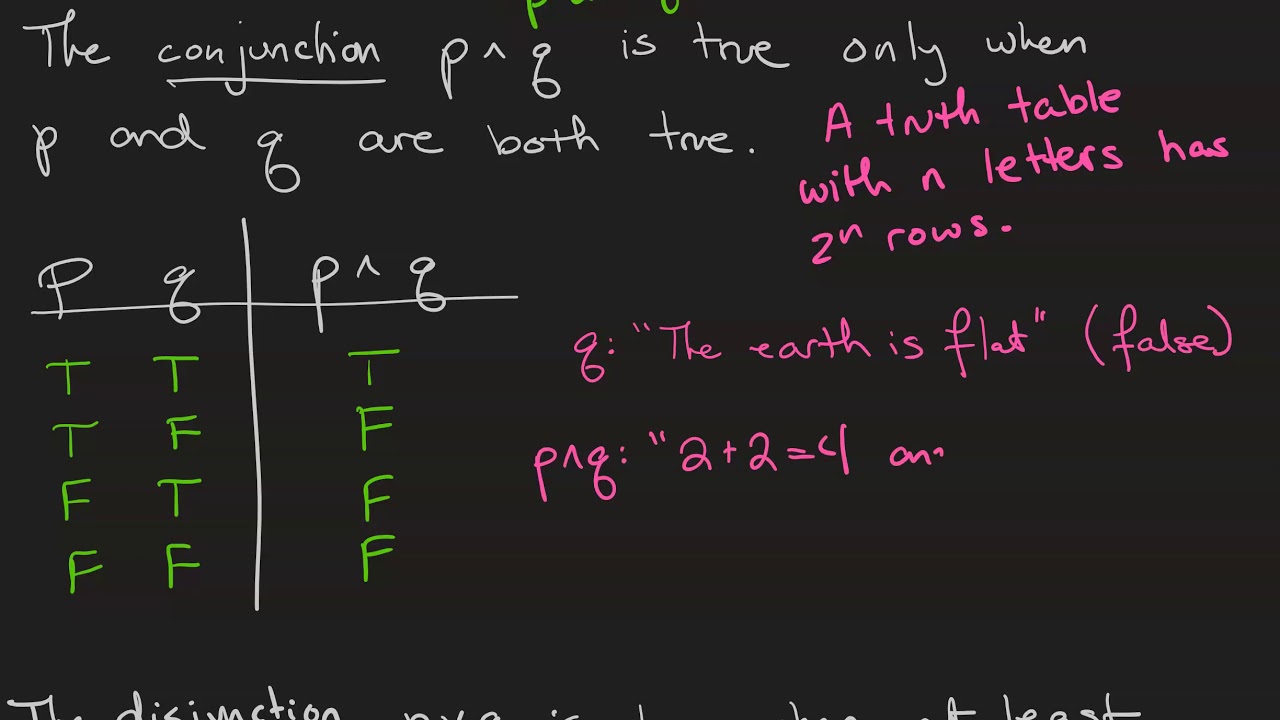 The conjunction p ∧ q is true only when
p and q are both true.
A truth table
with n letters has
2ⁿ rows.
p q p ∧ q
T T T
T F F
F T F
F F F
q: "The earth is flat" (false)
p∧q: "2+2=4 an
The disjunction p∨q is true when at least